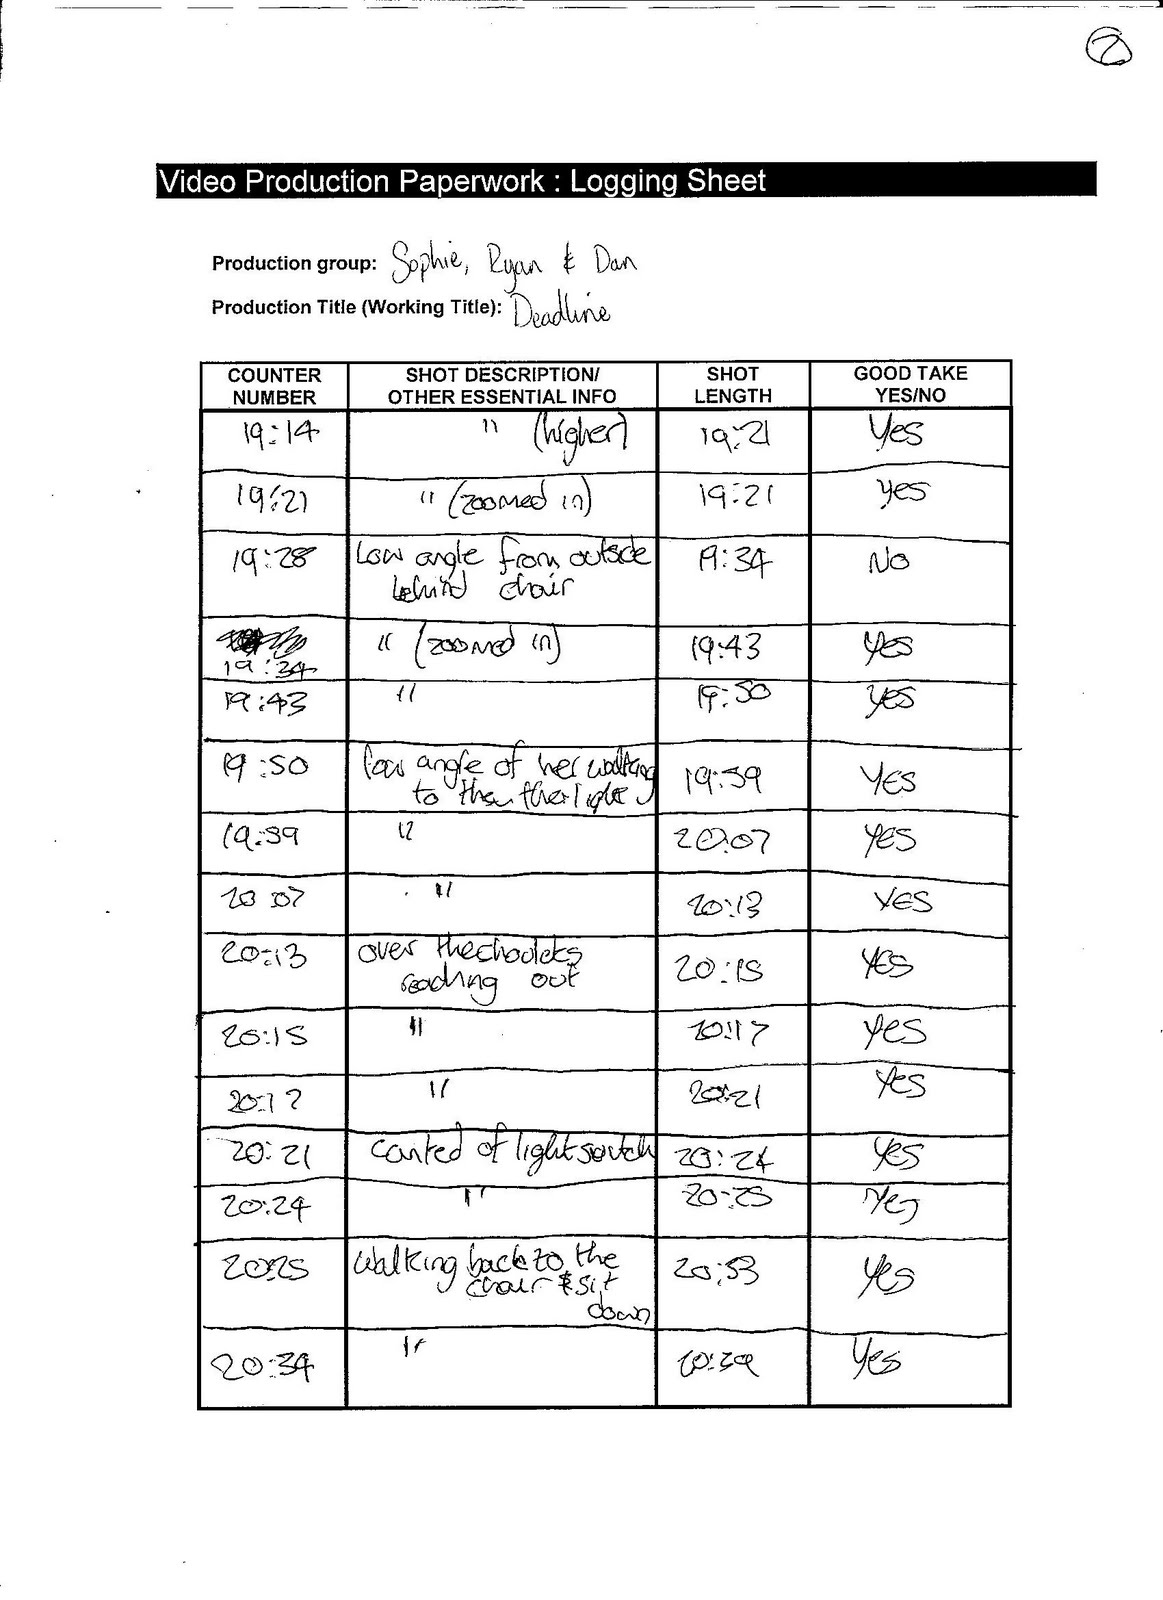 7
Video Production Paperwork : Logging Sheet
Production group: Sophie, Ryan & Dan
Production Title (Working Title): Deadline
COUNTER NUMBER SHOT DESCRIPTION/ OTHER ESSENTIAL INFO SHOT LENGTH GOOD TAKE YES/NO
19:14 " (higher) 19:21 Yes
19:21 " (zoomed in) 19:21 yes
19:28 Low angle from outside 19:34 No
behind chair
19:34 " (zoomed in) 19:43 yes
19:43 " 19:50 yes
19:50 low angle of her walking 19:59 YES
to the light
19:59 " 20:07 YES
20 07 " 20:13 YES
20:13 over the 20:15 YES
reading out
20:15 " 20:17 YES
20:17 " 20:21 YES
20:21 canted of light 20:24 yes
20:24 " 20:25 Yes
20:25 Walking back to the 20:33 Yes
chair & sit
down
20:34 " 20:39 Yes